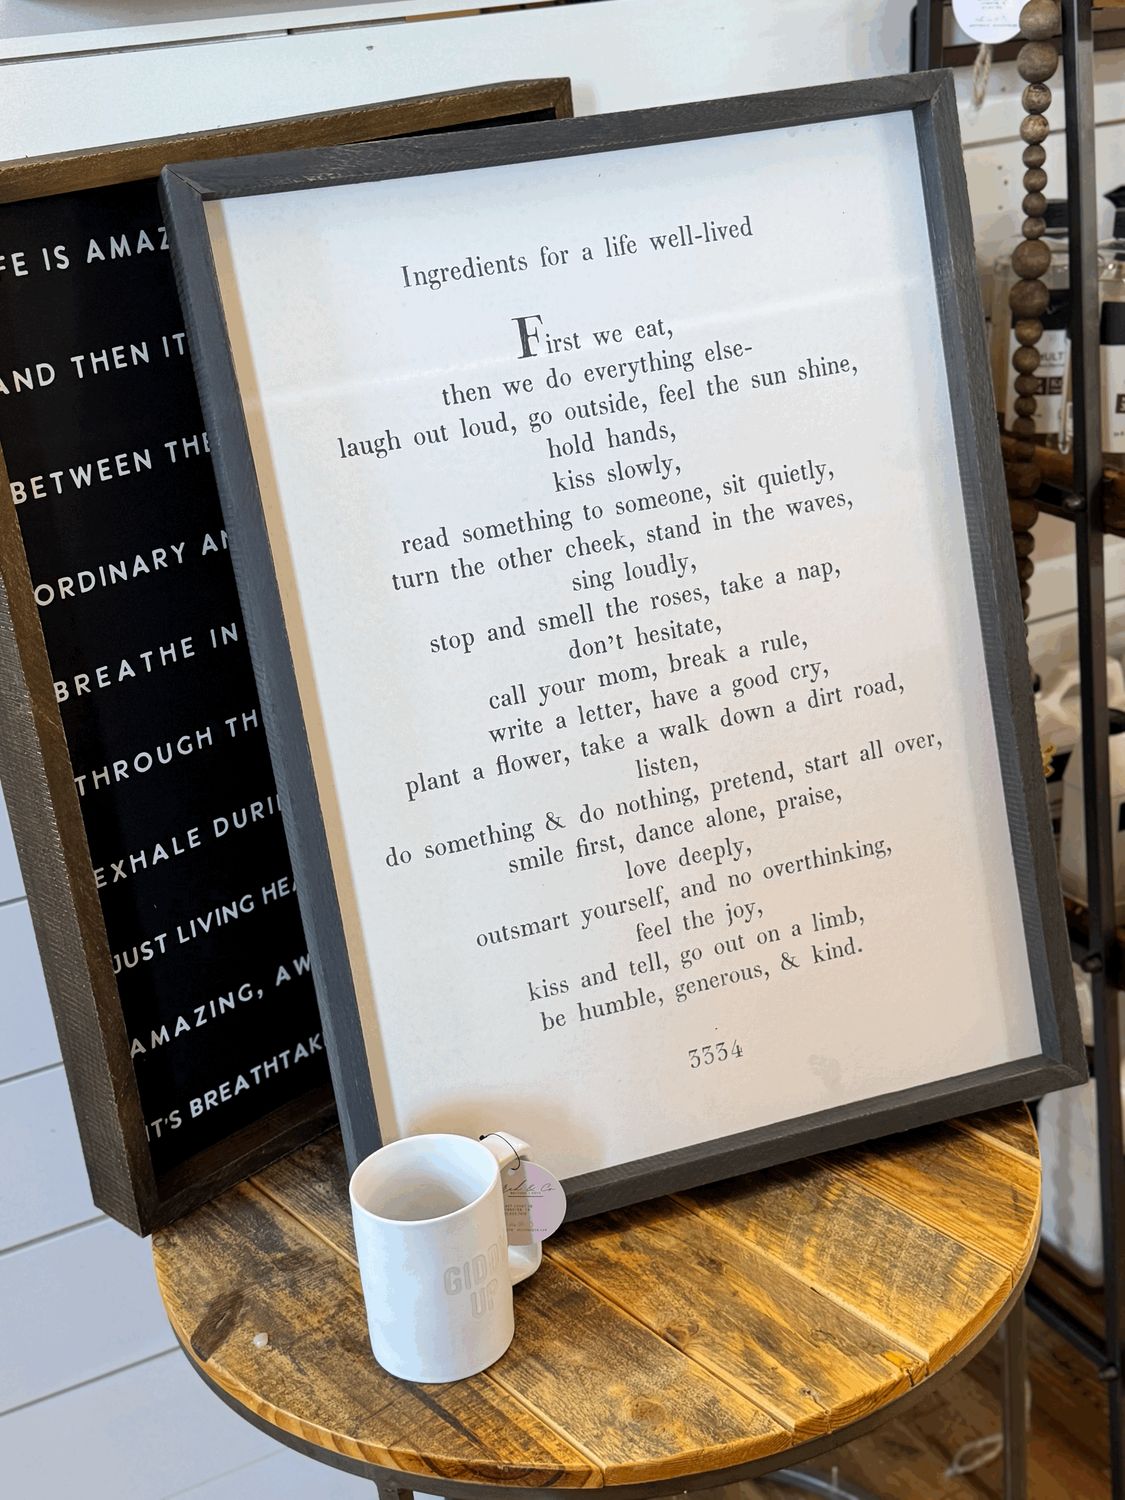 Ingredients for a life well-lived
First we eat,
then we do everything else-
laugh out loud, go outside, feel the sun shine,
hold hands,
kiss slowly,
read something to someone, sit quietly,
turn the other cheek, stand in the waves,
sing loudly,
stop and smell the roses, take a nap,
don't hesitate,
call your mom, break a rule,
write a letter, have a good cry,
plant a flower, take a walk down a dirt road,
listen,
do something & do nothing, pretend, start all over,
smile first, dance alone, praise,
love deeply,
outsmart yourself, and no overthinking,
feel the joy,
kiss and tell, go out on a limb,
be humble, generous, & kind.
3334
FE IS AMAZ
AND THEN IT
BETWEEN THE
ORDINARY AN
BREATHE IN
THROUGH TH
EXHALE DURI
JUST LIVING HEA
AMAZING, AW
IT'S BREATHTAK
GIDD
UP